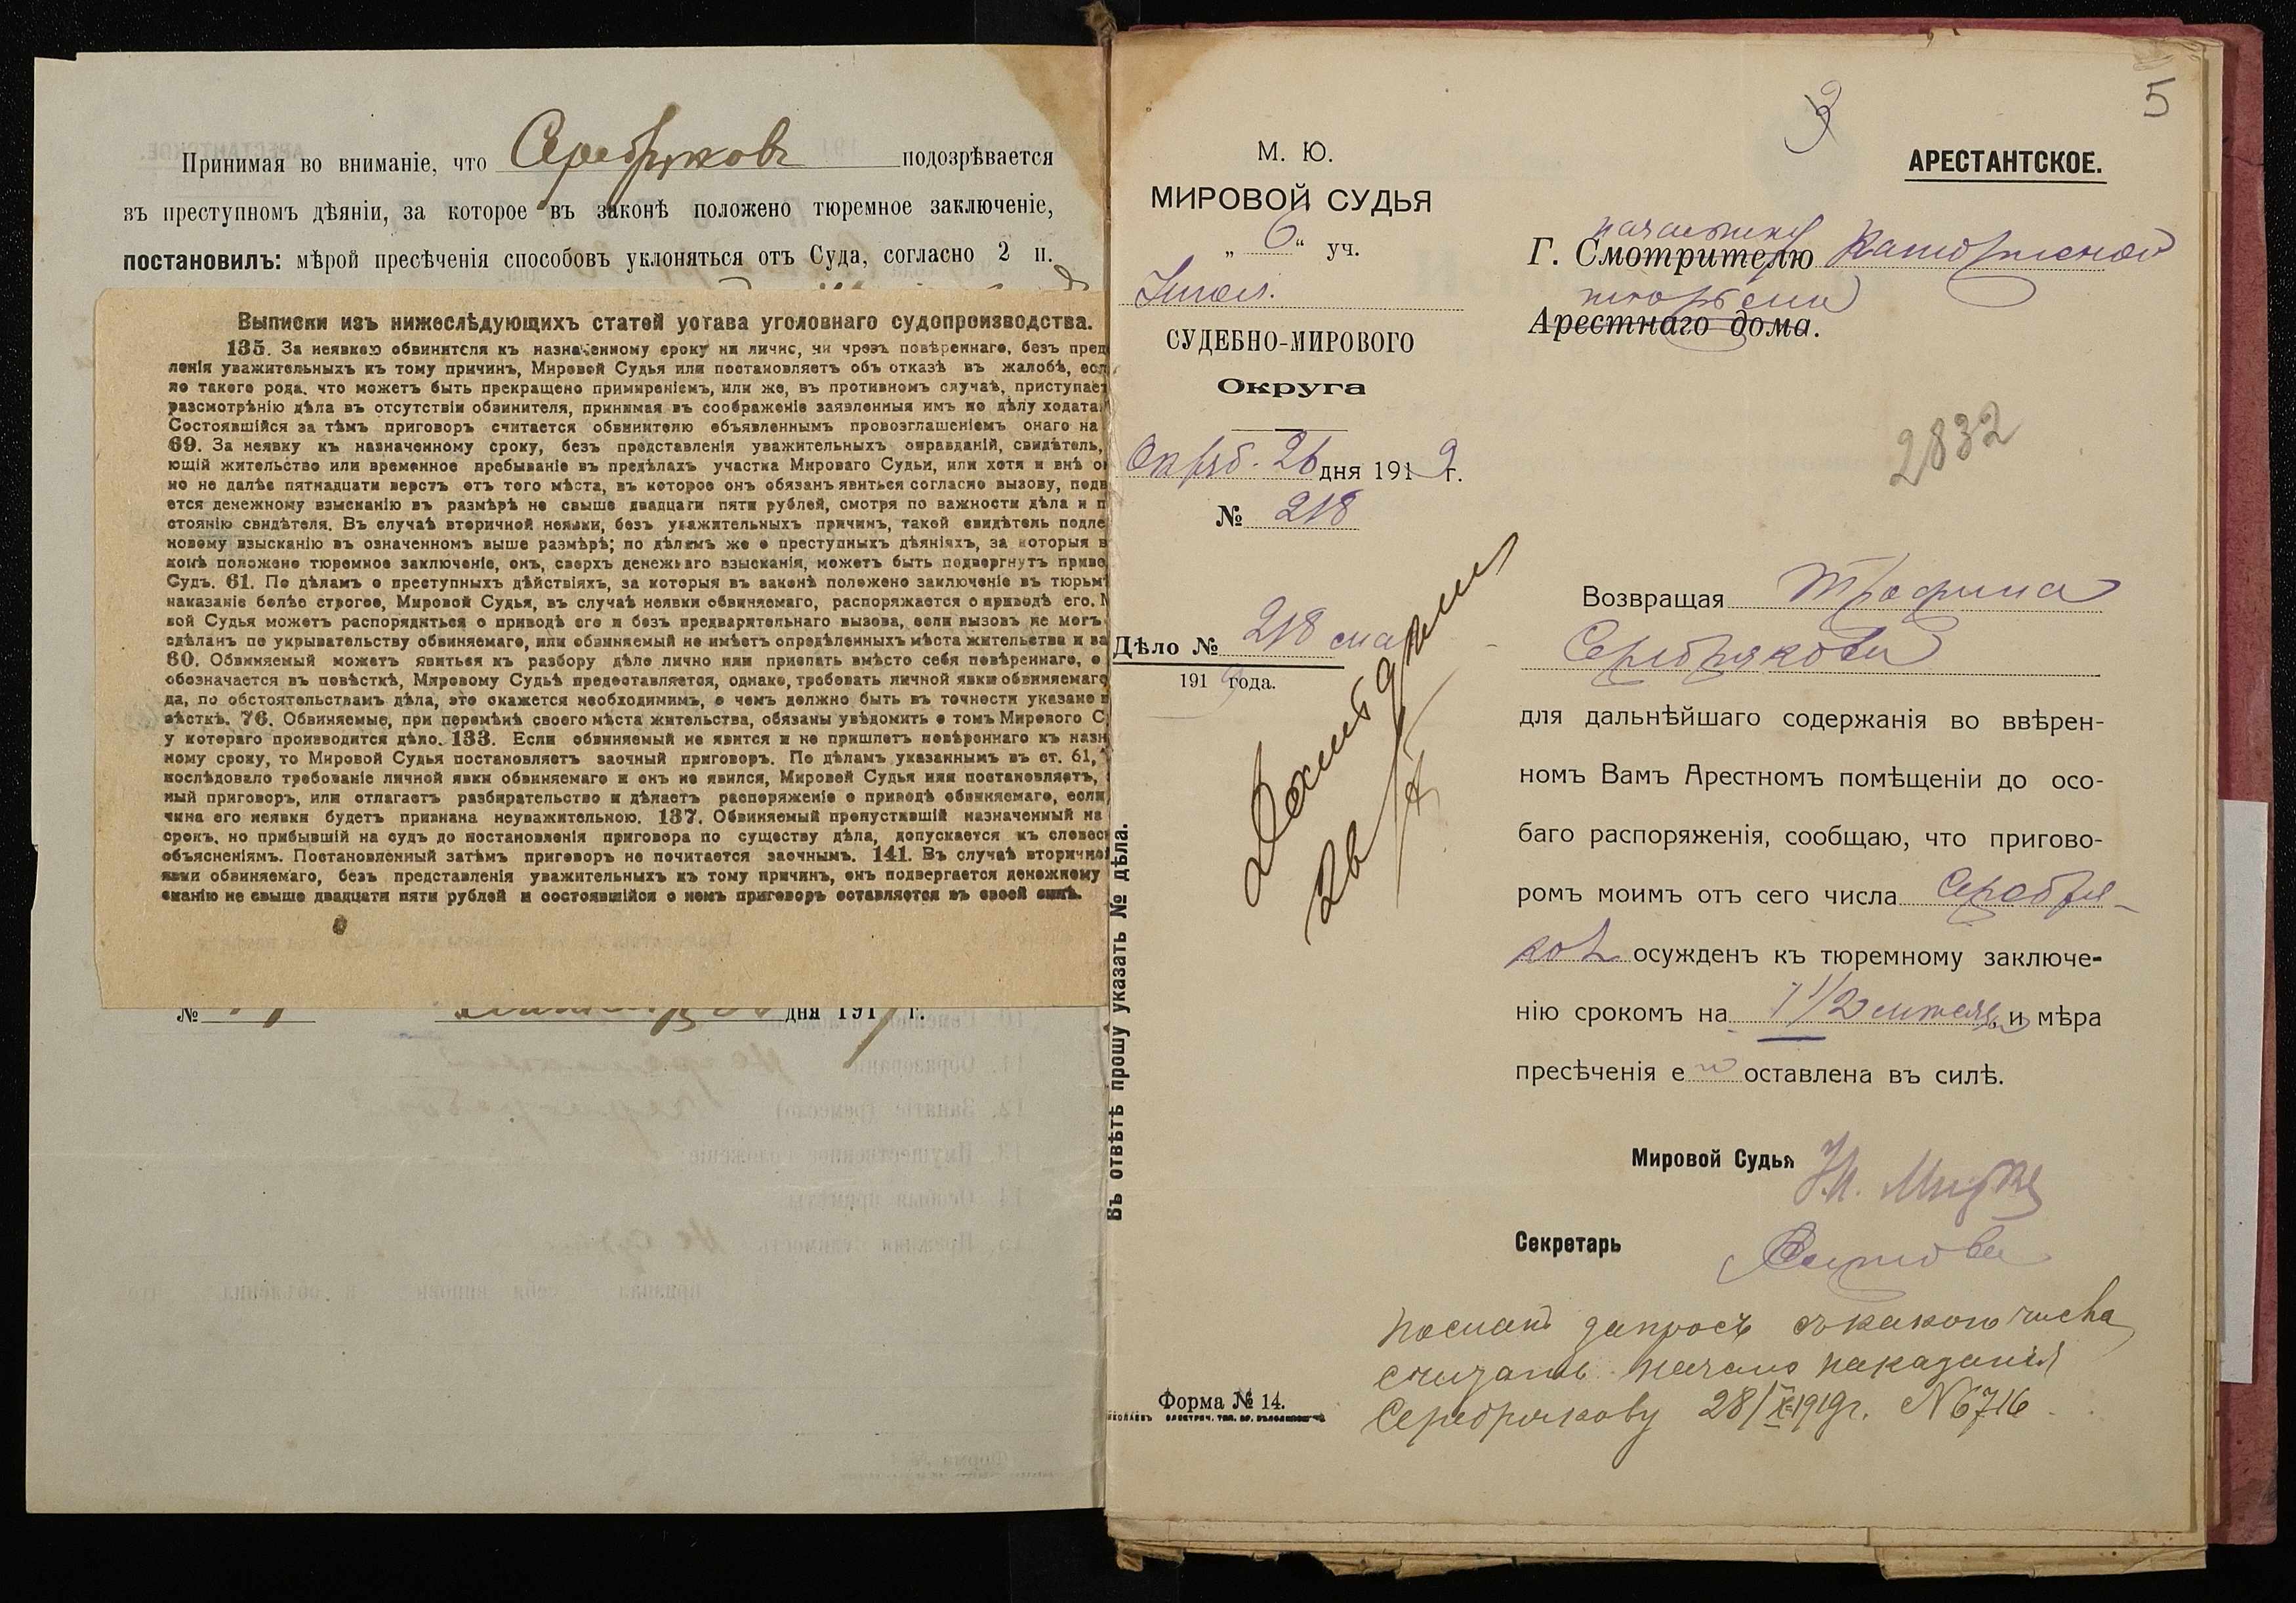 Принимая во вниманіе, что Серебряковъ подозрѣвается
въ преступномъ дѣяніи, за которое въ законѣ положено тюремное заключеніе,
постановилъ: мѣрой пресѣченія способовъ уклоняться отъ Суда, согласно 2 п.
Выписки изъ нижеслѣдующихъ статей устава уголовнаго судопроизводства.
135. За неявкою обвинителя къ назначенному сроку ни лично, ни чрезъ повѣреннаго, безъ пред
ленія уважительныхъ къ тому причинъ, Мировой Судья или постановляетъ объ отказѣ въ жалобѣ, есл
ло такого рода, что можетъ быть прекращено примиреніемъ, или же, въ противномъ случаѣ, приступает
разсмотрѣнію дѣла въ отсутствіи обвинителя, принимая въ соображеніе заявленныя имъ по дѣлу ходата
Состоявшійся за тѣмъ приговоръ считается обвинителю объявленнымъ провозглашеніемъ онаго на
69. За неявку къ назначенному сроку, безъ представленія уважительныхъ оправданій, свидѣтель,
ющій жительство или временное пребываніе въ предѣлахъ участка Мироваго Судьи, или хотя и внѣ о
но не далѣе пятнадцати верстъ отъ того мѣста, въ которое онъ обязанъ явиться согласно вызову, подв
ется денежному взысканію въ размѣрѣ не свыше двадцати пяти рублей, смотря по важности дѣла и п
стоянію свидѣтеля. Въ случаѣ вторичной неявки, безъ уважительныхъ причинъ, такой свидѣтель подле
новому взысканію въ означенномъ выше размѣрѣ; по дѣламъ же о преступныхъ дѣяніяхъ, за которыя в
конѣ положено тюремное заключеніе, онъ, сверхъ денежнаго взысканія, можетъ быть подвергнутъ приво
Судъ. 61. По дѣламъ о преступныхъ дѣйствіяхъ, за которыя въ законѣ положено заключеніе въ тюрьм
наказаніе болѣе строгое, Мировой Судья, въ случаѣ неявки обвиняемаго, распоряжается о приводѣ его. М
вой Судья можетъ распорядиться о приводѣ его и безъ предварительнаго вызова, если вызовъ не могъ
сдѣланъ по укрывательству обвиняемаго, или обвиняемый не имѣетъ опредѣленныхъ мѣста жительства и за
60. Обвиняемый можетъ явиться къ разбору дѣла лично или прислать вмѣсто себя повѣреннаго, о
обозначается въ повѣсткѣ, Мировому Судьѣ предоставляется, однако, требовать личной явки обвиняемаго
да, по обстоятельствамъ дѣла, это окажется необходимымъ, о чемъ должно быть въ точности указано в
вѣсткѣ. 76. Обвиняемые, при перемѣнѣ своего мѣста жительства, обязаны увѣдомить о томъ Мирового С
у котораго производится дѣло. 133. Если обвиняемый не явится и не пришлетъ повѣреннаго къ назн
ному сроку, то Мировой Судья постановляетъ заочный приговоръ. По дѣламъ указаннымъ въ ст. 61,
послѣдовало требованіе личной явки обвиняемаго и онъ не явился, Мировой Судья или постановляетъ,
ный приговоръ, или отлагаетъ разбирательство и дѣлаетъ распоряженіе о приводѣ обвиняемаго, если
чина его неявки будетъ признана неуважительною. 137. Обвиняемый пропустившій назначенный на
срокъ, но прибывшій на судъ до постановленія приговора по существу дѣла, допускается къ словес
объясненіямъ. Постановленный затѣмъ приговоръ не почитается заочнымъ. 141. Въ случаѣ вторично
явки обвиняемаго, безъ представленія уважительныхъ къ тому причинъ, онъ подвергается денежному
сканію не свыше двадцати пяти рублей и состоявшійся о немъ приговоръ оставляется въ своей силѣ.
№ дня 191 г.
5
3
М. Ю.
МИРОВОЙ СУДЬЯ
„ 6 “ уч.
СУДЕБНО-МИРОВОГО
Округа
Октяб. 26 дня 1919 г.
№ 218
Дѣло № 218
1919 года.
Въ отвѣтѣ прошу указать № дѣла.
АРЕСТАНТСКОЕ.
начальнику
Г. Смотрителю Каторжной
тюрьмы
Арестнаго дома.
2832
Возвращая Трофима
Серебрякова
для дальнѣйшаго содержанія во ввѣрен-
номъ Вамъ Арестномъ помѣщеніи до осо-
баго распоряженія, сообщаю, что пригово-
ромъ моимъ отъ сего числа Серебря-
ковъ осужденъ къ тюремному заключе-
нію срокомъ на 1 1/2 мѣсяца, и мѣра
пресѣченія е го оставлена въ силѣ.
Мировой Судья
Секретарь
Посланъ запросъ съ какого числа
считать начало наказанія
Серебрякову 28/X 1919г. № 6716
Форма № 14.